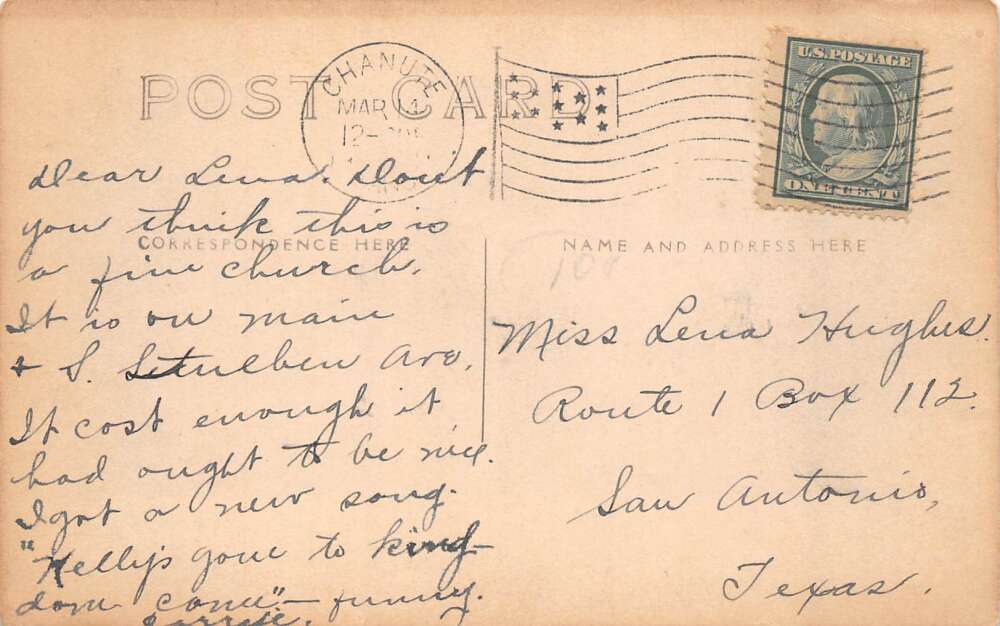 POST CARD
CHANUTE
MAR 14
12-
U.S. POSTAGE
ONE CENT
CORRESPONDENCE HERE
NAME AND ADDRESS HERE
Dear Lena. Dont
you think this is
a fine church.
It is on main
+ S. Ave.
It cost enough it
had ought to be nice.
I got a new song.
"Kelly's gone to king-
dom come" - funny.
Carrie.
108
Miss Lena Hughes.
Route 1 Box 112.
San Antonio,
Texas.